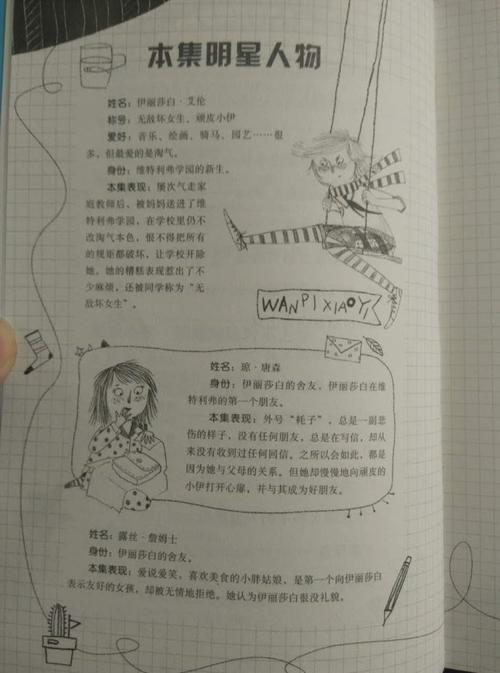 本集明星人物
姓名：伊丽莎白·艾伦
称号：无敌坏女生、顽皮小伊
爱好：音乐、绘画、骑马、园艺……很
多，但最爱的是淘气。
身份：维特利弗学园的新生。
本集表现：屡次气走家
庭教师后，被妈妈送进了维
特利弗学园，在学校里仍不
改淘气本色，恨不得把所有
的规矩都破坏，让学校开除
她。她的糟糕表现惹出了不
少麻烦，还被同学称为“无
敌坏女生”。
WANPIXIAOYI
姓名：琼·唐森
身份：伊丽莎白的舍友，伊丽莎白在维
特利弗的第一个朋友。
本集表现：外号“耗子”，总是一副悲
伤的样子，没有任何朋友，总是在写信，却从
来没有收到过任何回信。之所以会如此，都是
因为她与父母的关系。但她却慢慢地向顽皮的
小伊打开心扉，并与其成为好朋友。
姓名：露丝·詹姆士
身份：伊丽莎白的舍友。
本集表现：爱说爱笑，喜欢美食的小胖姑娘，是第一个向伊丽莎白
表示友好的女孩，却被无情地拒绝。她认为伊丽莎白很没礼貌。